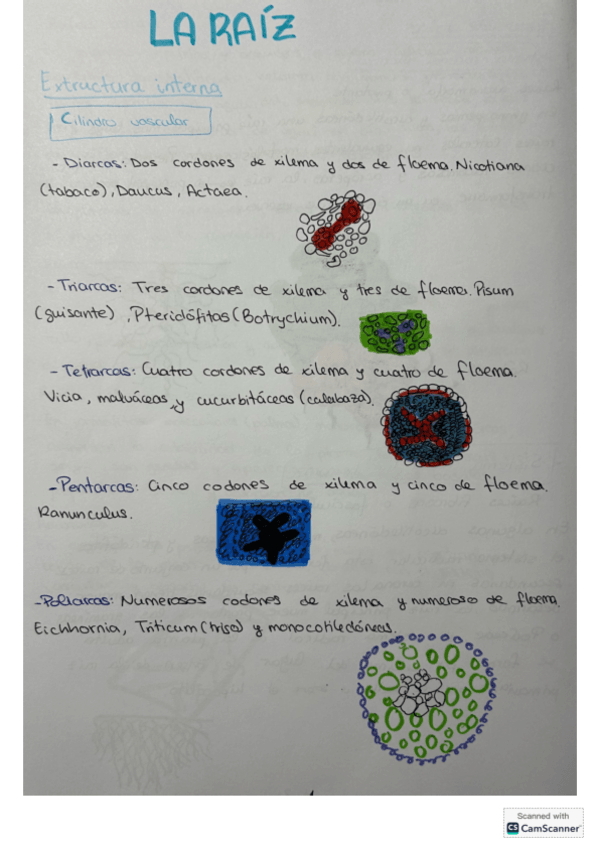 LA RAÍZ
Extructura interna
Cilindro vascular
- Diarcas: Dos cordones de xilema y dos de floema. Nicotiana
(tabaco), Daucus, Actaea.
- Triarcas: Tres cordones de xilema y tres de floema. Pisum
(guisante), Pteridófitos (Botrychium).
- Tetrarcas: Cuatro cordones de xilema y cuatro de floema.
Vicia, malváceas y cucurbitáceas (calabaza).
- Pentarcas: Cinco codones de xilema y cinco de floema.
Ranunculus.
- Poliarcas: Numerosos codones de xilema y numeroso de floema.
Eichhornia, Triticum (trigo) y monocotiledóneas.
Scanned with
CS CamScanner